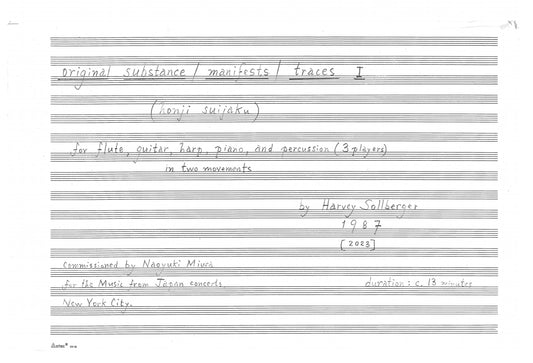 original substance / manifests / traces I
(honji suijaku)
for flute, guitar, harp, piano, and percussion (3 players)
in two movements
by Harvey Sollberger
1987
[2023]
Commissioned by Naoyuki Miura
for the Music from Japan concerts,
duration: c. 13 minutes
New York City.